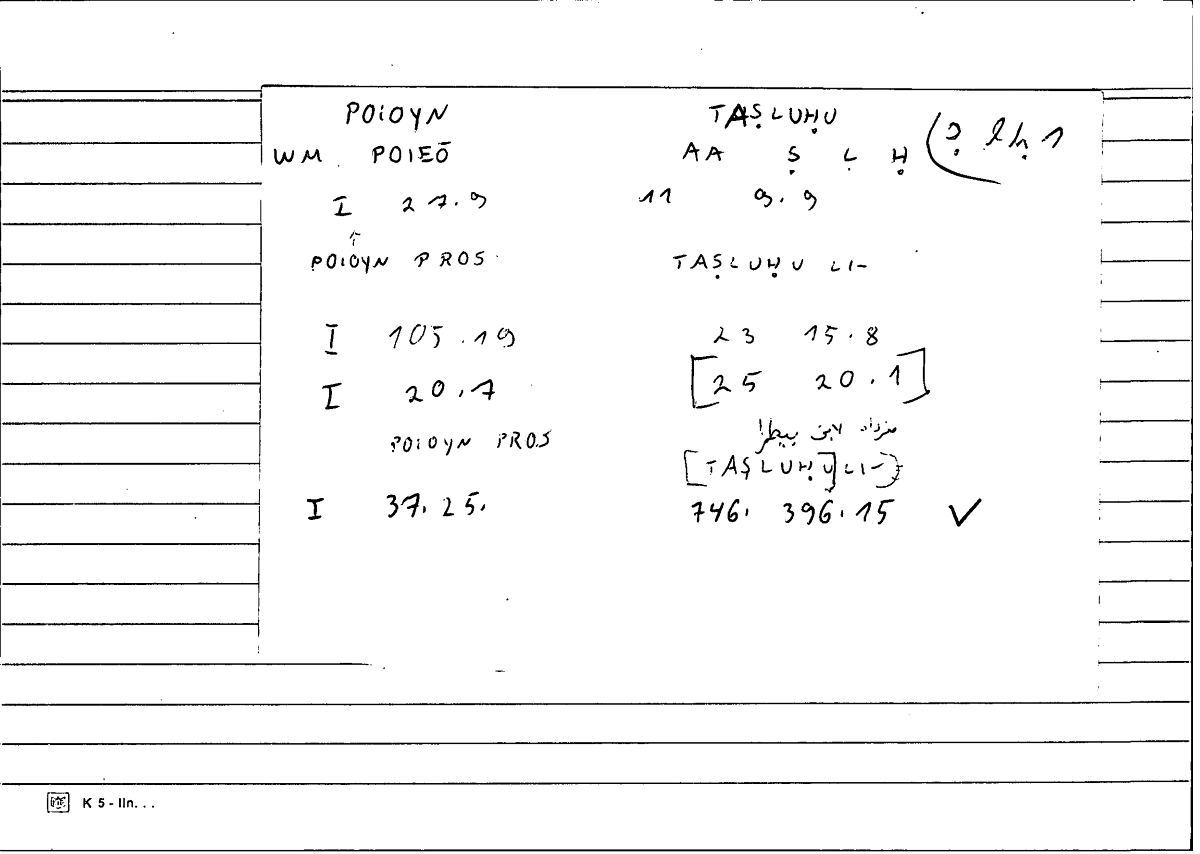 POIOYN TAṢLUḤU
WM POIEŌ AA Ṣ L Ḥ (ṣlḥ 1
I 27.9 11 9.9
↑
POIOYN PROS TAṢLUḤU LI-
I 105.19 23 15.8
I 20.7 [25 20.1]
مزداد لابن بيطرا
POIOYN PROS [TAṢLUḤU] LI-
I 37.25. 746. 396.15 ✓
K 5 - IIn. . .